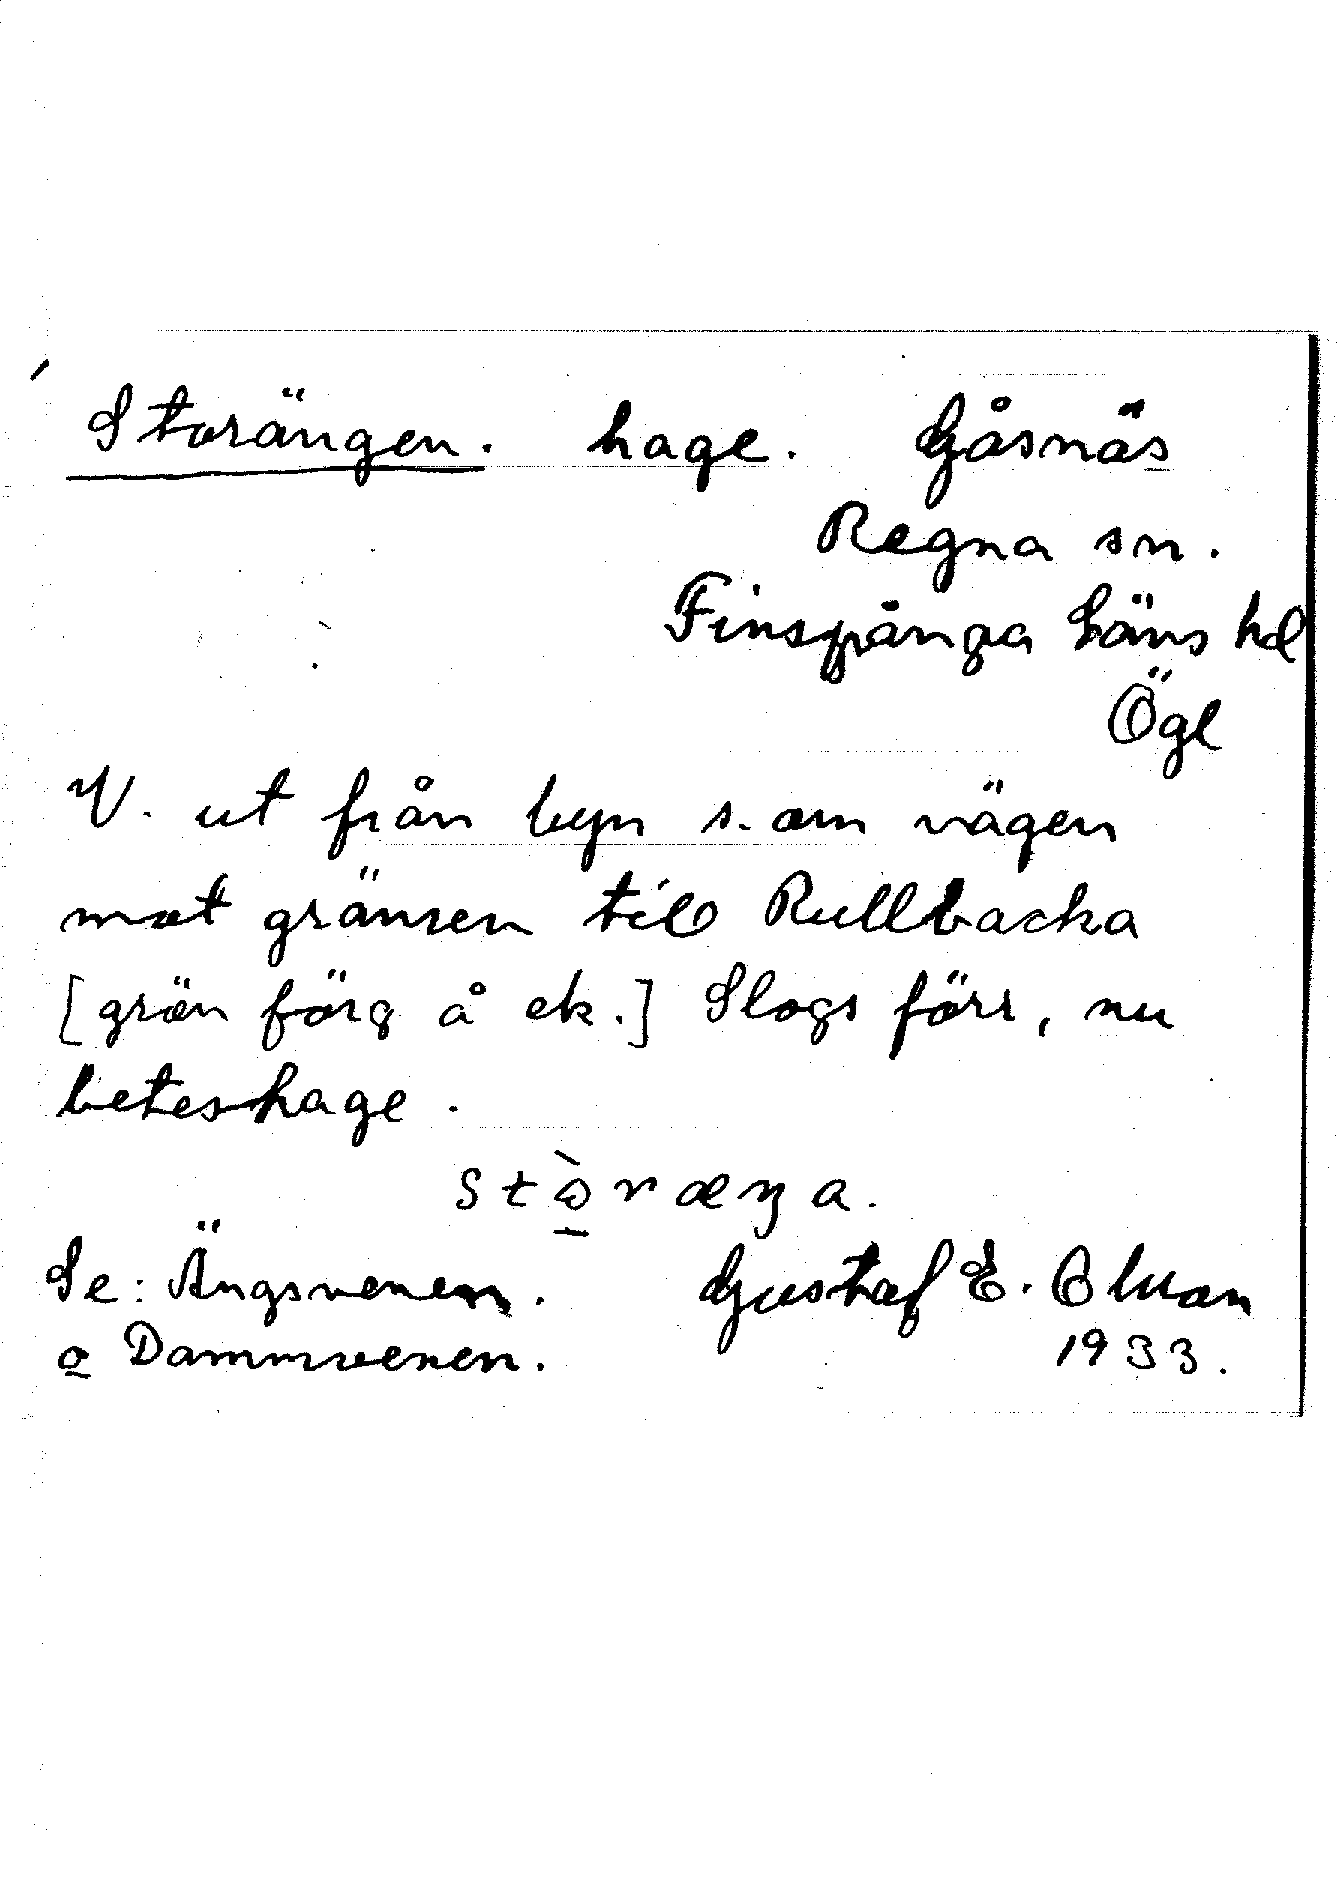 Storängen. hage. Gåsnäs
Regna sn.
Finspånga Läns hd
Ögl
V. ut från byn s. om vägen
mot gränsen till Rullbacka
[grön färg å ek.] Slogs förr, nu
beteshage.
Se: Ängsvenen. Gustaf E. Olwan
o Dammvenen. 1933.